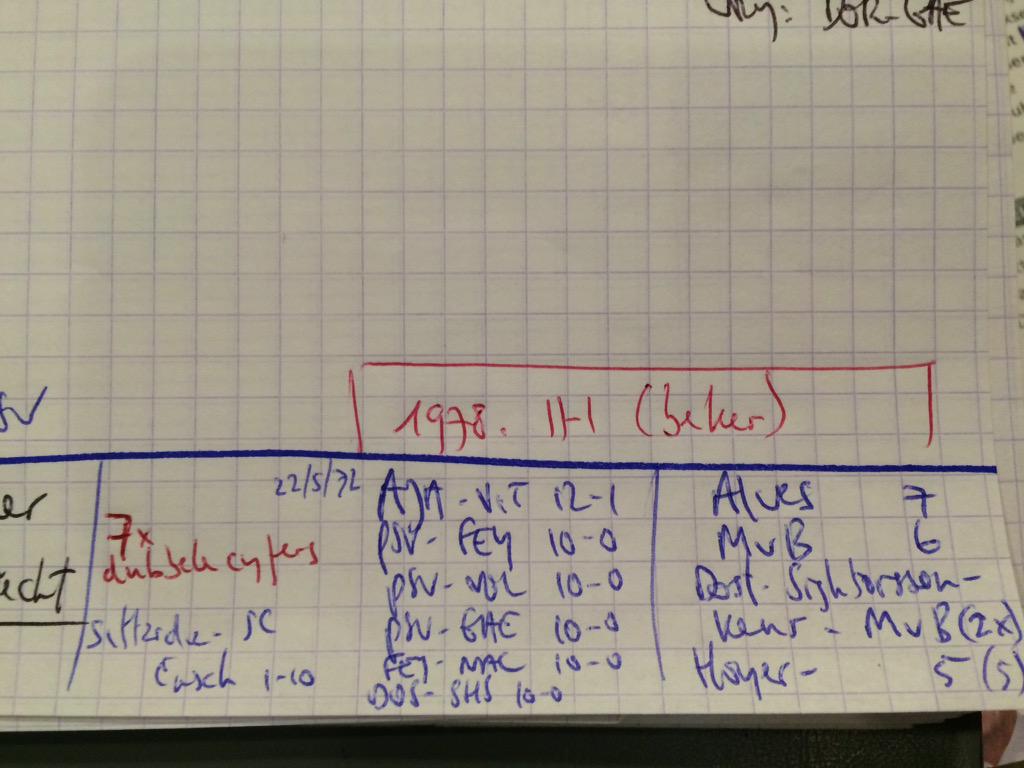 DOR-GAE
SV
1978. 11-1 (beker)
er
22/5/72 AJA - VIT 12-1
Alves 7
7x
PSV - FEY 10-0
MvB 6
dubbele cyfers
echt
PSV - VOL 10-0
Dost - Sighthorsson -
Sittardia - SC
PSV - GAE 10-0
Kenr - MvB (2x)
Ensch 1-10
FEY - NAC 10-0
Hoyer - 5 (5)
DOS - SHS 10-0